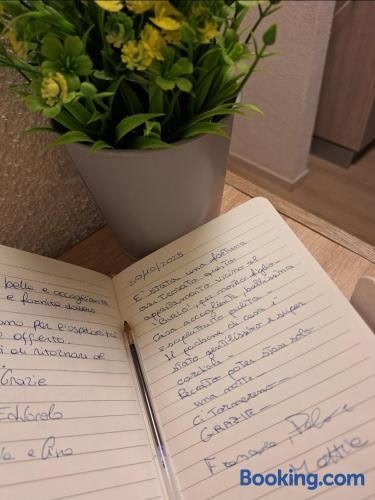 bello e accogliente
e fornito
per l'ospitalità
offerto.
di ritornare
Grazie
Edoardo
e Gino
30/10/2023
È stata una fortuna
aver trovato questo
appartamento vicino al
per nostro figlio.
Casa accogliente bellissima
e soprattutto pulita.
Il padrone di casa è
stato gentilissimo e super
cordiale.
Peccato poter stare solo
una notte.
Ci torneremo
GRAZIE
Francesca, Paolo e
Mattia
Booking.com